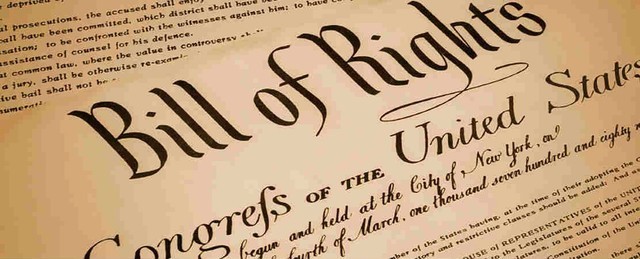 deprived
al prosecutions, the accused shall enjoy
all have been committed, which district shall have be
sation; to be confronted with the witnesses against him; to have co
ssistance of counsel for his defence.
at common law, where the value in controversy shall
a jury, shall be otherwise re-exami
ive bail shall not be
numerati
Bill of Rights
Congreſs OF THE United States
begun and held at the City of New York, on
fourth of March, one thousand seven hundred and eighty n
mber of the States having, at the time of their adopting the
atory and restrictive clauses should be added: And as
OUSE OF REPRESENTATIVES of the UNI
to the Legislatures of the several S
tures, to be valid to all inte